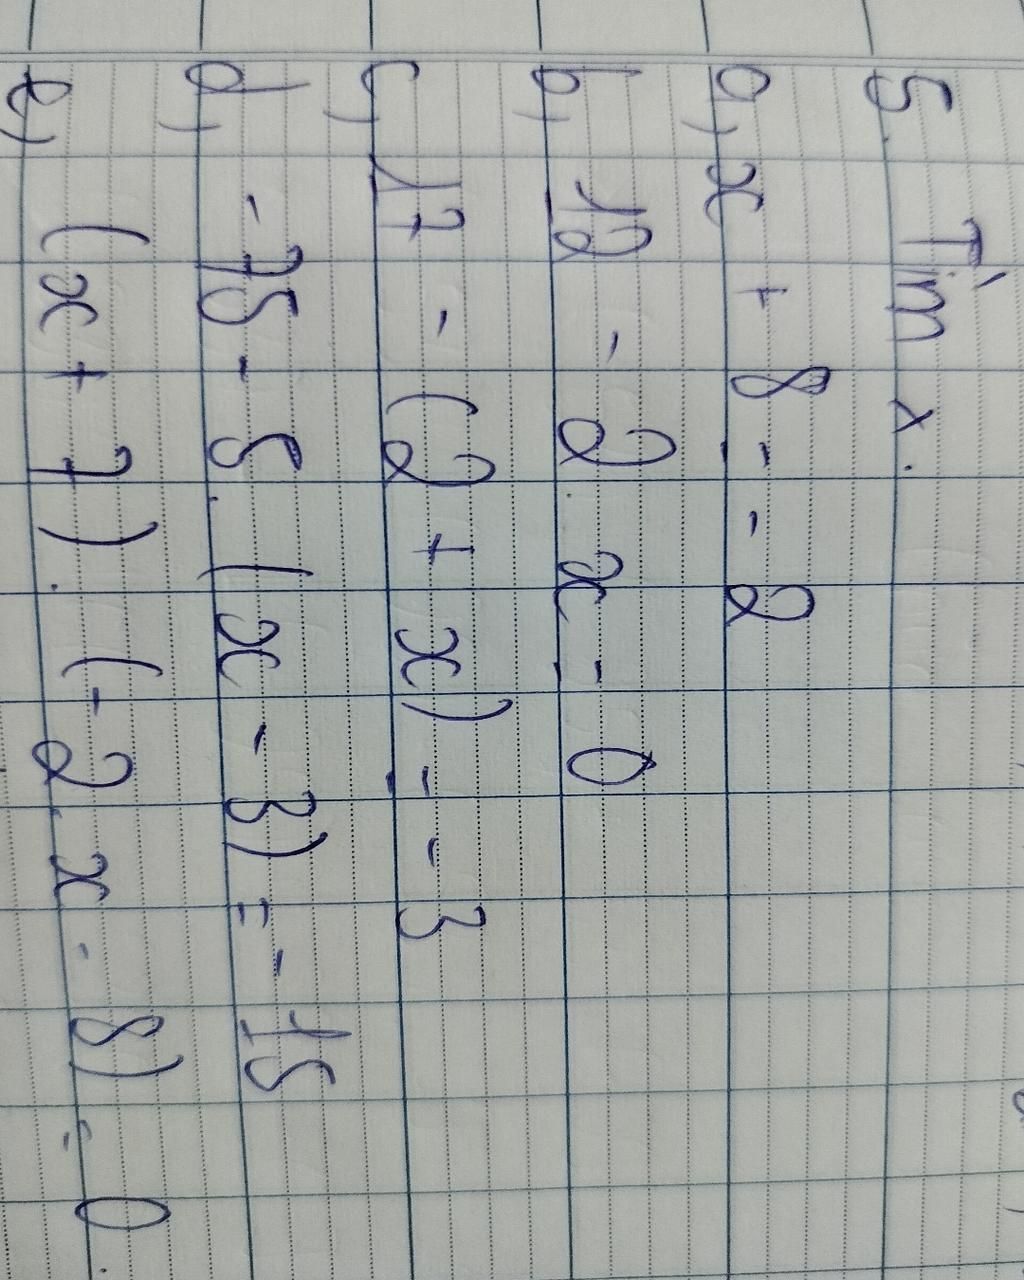 5. Tìm x.
a, x + 8 = - 2
b, 12 - 2 . x = 0
c, 17 - (2 + x) = - 3
d, - 75 - 5 . (x - 3) = - 15
e, (x + 7) . (- 2 . x - 8) = 0